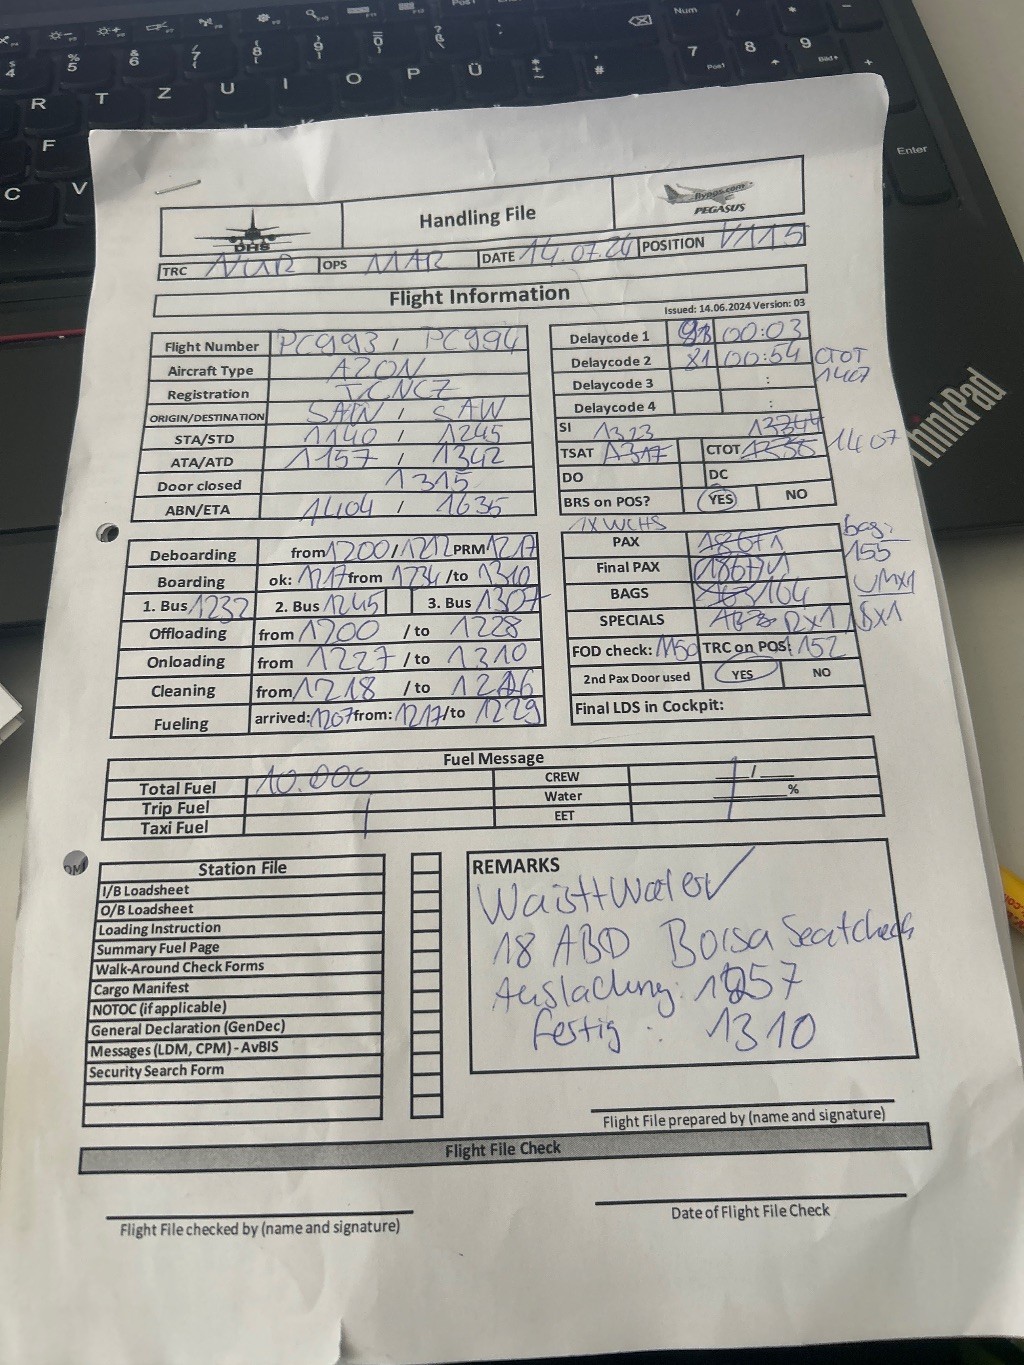 Handling File
DHS
flypgs.com
PEGASUS
TRC NUR OPS MAR DATE 14.07.24 POSITION V115
Flight Information
Issued: 14.06.2024 Version: 03
Flight Number PC993 / PC994
Aircraft Type A20N
Registration TCNCZ
ORIGIN/DESTINATION SAW / SAW
STA/STD 1140 / 1245
ATA/ATD 1157 / 1342
Door closed 1315
ABN/ETA 1404 / 1635
Delaycode 1 93 00:03
Delaycode 2 81 00:54 CTOT
Delaycode 3 : 1407
Delaycode 4 :
SI 1323 1344
TSAT 1317 CTOT 1338 1407
DO DC
BRS on POS? YES NO
Deboarding from 1200/1212 PRM 1217
Boarding ok: 1217 from 1234 /to 1310
1. Bus 1232 2. Bus 1245 3. Bus 1307
Offloading from 1200 /to 1228
Onloading from 1227 /to 1310
Cleaning from 1218 /to 1226
Fueling arrived: 1207 from: 1217 /to 1229
1X WCHS
PAX 186+1 bag:
Final PAX 186+1 155
BAGS 164 UMx1
SPECIALS
FOD check: 1150 TRC on POS: 1152
2nd Pax Door used YES NO
Final LDS in Cockpit:
Fuel Message
Total Fuel 10.000 CREW /
Trip Fuel Water %
Taxi Fuel EET
Station File
I/B Loadsheet
O/B Loadsheet
Loading Instruction
Summary Fuel Page
Walk-Around Check Forms
Cargo Manifest
NOTOC (if applicable)
General Declaration (GenDec)
Messages (LDM, CPM) - AvBIS
Security Search Form
REMARKS
WaisttWater ✓
18 ABD Borsa Seatcheck
Ausladung: 1257
fertig : 1310
Flight File prepared by (name and signature)
Flight File Check
Flight File checked by (name and signature)
Date of Flight File Check
ThinkPad
Enter